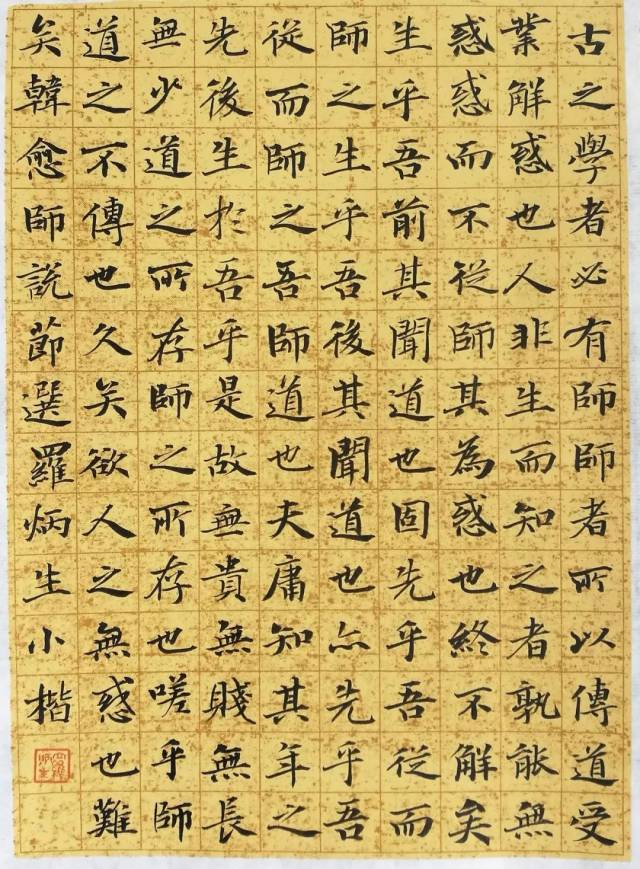 古之學者必有師師者所以傳道受
業解惑也人非生而知之者孰能無
惑惑而不從師其為惑也終不解矣
生乎吾前其聞道也固先乎吾從而
師之生乎吾後其聞道也亦先乎吾
從而師之吾師道也夫庸知其年之
先後生於吾乎是故無貴無賤無長
無少道之所存師之所存也嗟乎師
道之不傳也久矣欲人之無惑也難
矣韓愈師說節選羅炳生小楷